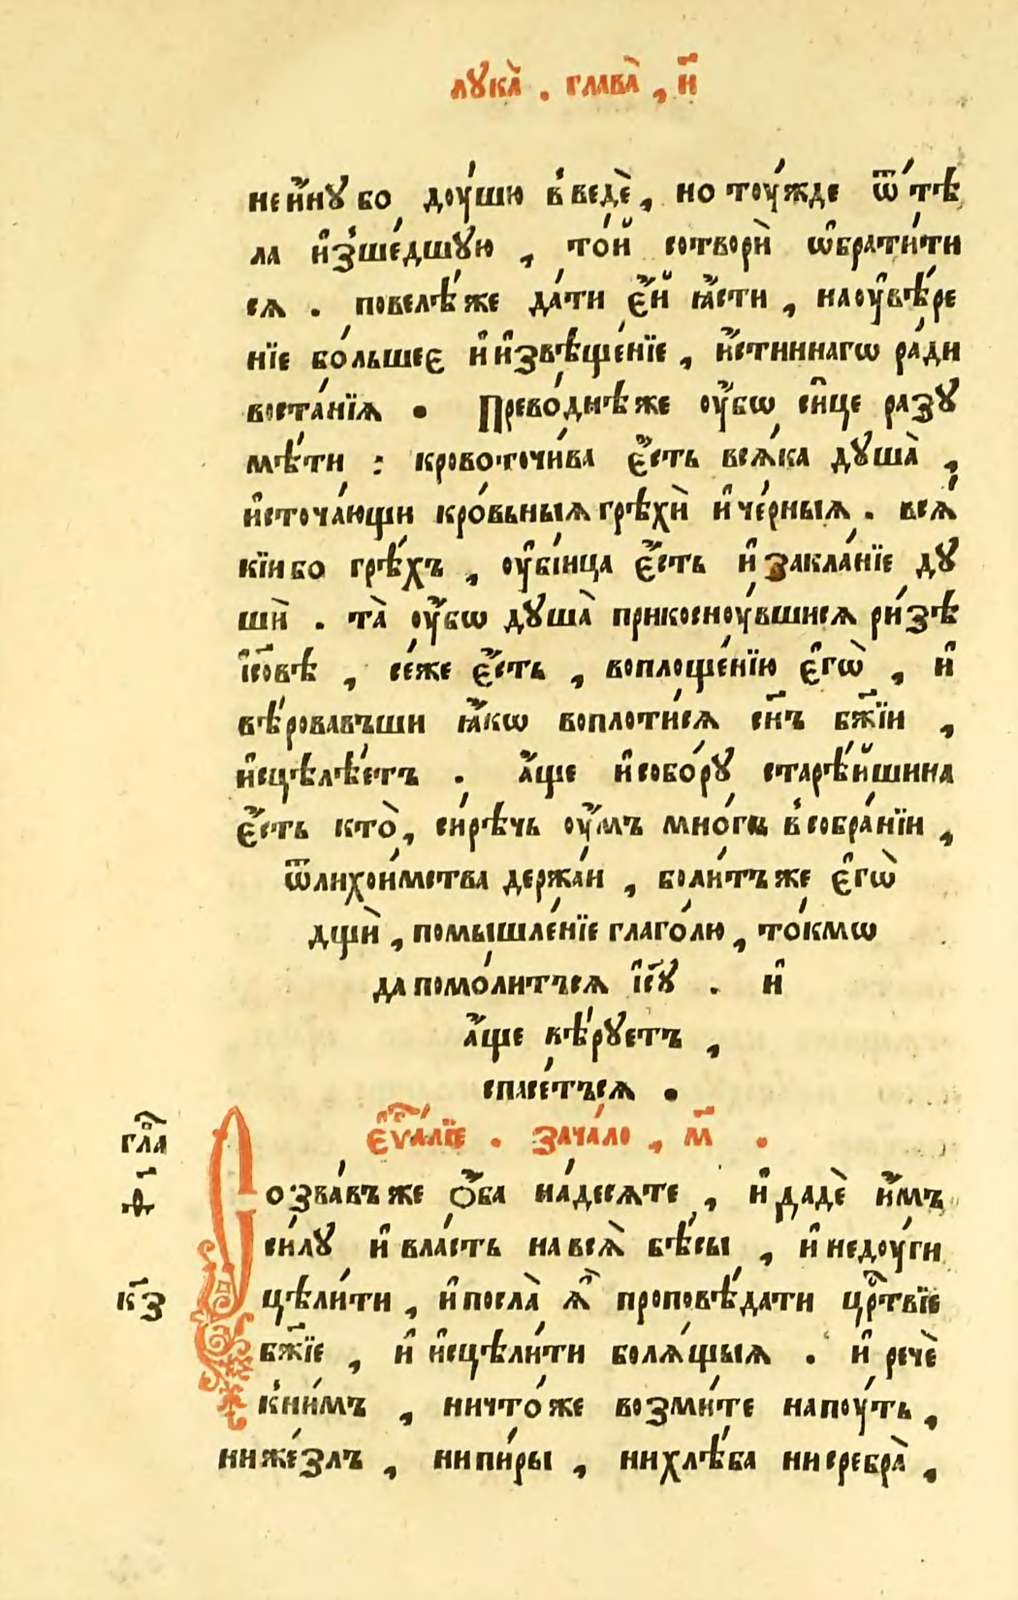 лꙋка̀ . глава̀ , и҃
не и҆́нꙋ бо доу́шю в̾ведѐ , но тоу́жде ѿ тѣ́
ла и҆з̾ше́дшꙋю , то́й сотворѝ ѡ҆брати́ти
сѧ . повелѣ́ же да́ти є҆́й ꙗ҆́сти , на оу҆вѣ́ре
нїе бо́льшеє и҆ и҆звѣще́нїе , и҆́стиннагѡ ра́ди
воста́нїѧ . Прево́днѣ же оу҆́бѡ си́це разꙋ
мѣ́ти : кровоточи́ва є҆́сть всѧ́ка дꙋша̀ ,
и҆сточа́ющи кро́вьныѧ грѣхѝ и҆ че́рныѧ . всѧ́
кїи бо грѣ́хъ , оу҆бі́ица є҆́сть и҆ закла́нїе дꙋ
шѝ . та̀ оу҆́бѡ дꙋша̀ прикосноу́вшисѧ ри́зѣ
і҆с҃овѣ , се́же є҆́сть , воплоще́нїю є҆гѡ̀ , и҆
вѣ́ровавъши ꙗ҆́кѡ воплоти́сѧ сн҃ъ бж҃їи ,
и҆сцѣлѣ́етъ . а҆́ще и҆ собо́рꙋ старѣ́йшина
є҆́сть кто̀ , си́рѣчь оу҆́мъ мно́гъ в̾ собра́нїи ,
ѿ лихои́мства держа́и , боли́тъ же є҆гѡ̀
дщѝ , помышле́нїе глаго́лю , то́кмѡ
да помо́литъсѧ і҆с҃ꙋ . и҆
а҆́ще вѣ́рꙋетъ ,
спасе́тъсѧ .
є҆ѵⷢ҇а́лїе . зача́ло , м҃ .
гла҃
ѳ҃
Созва́въ же ѻ҆́ба на́десѧте , и҆ дадѐ и҆́мъ
си́лꙋ и҆ вла́сть на всѧ̀ бѣ́сы , и҆ недоу́ги
к҃з
цѣли́ти , и҆ посла̀ ѧ҆̀ проповѣ́дати црⷭ҇твїе
бж҃їе , и҆ и҆сцѣли́ти болѧ́щыѧ . и҆ речѐ
к̾ ни́мъ , ничто́же возми́те на поу́ть ,
ни же́злъ , ни пи́ры , ни хлѣ́ба ни сребра̀ ,